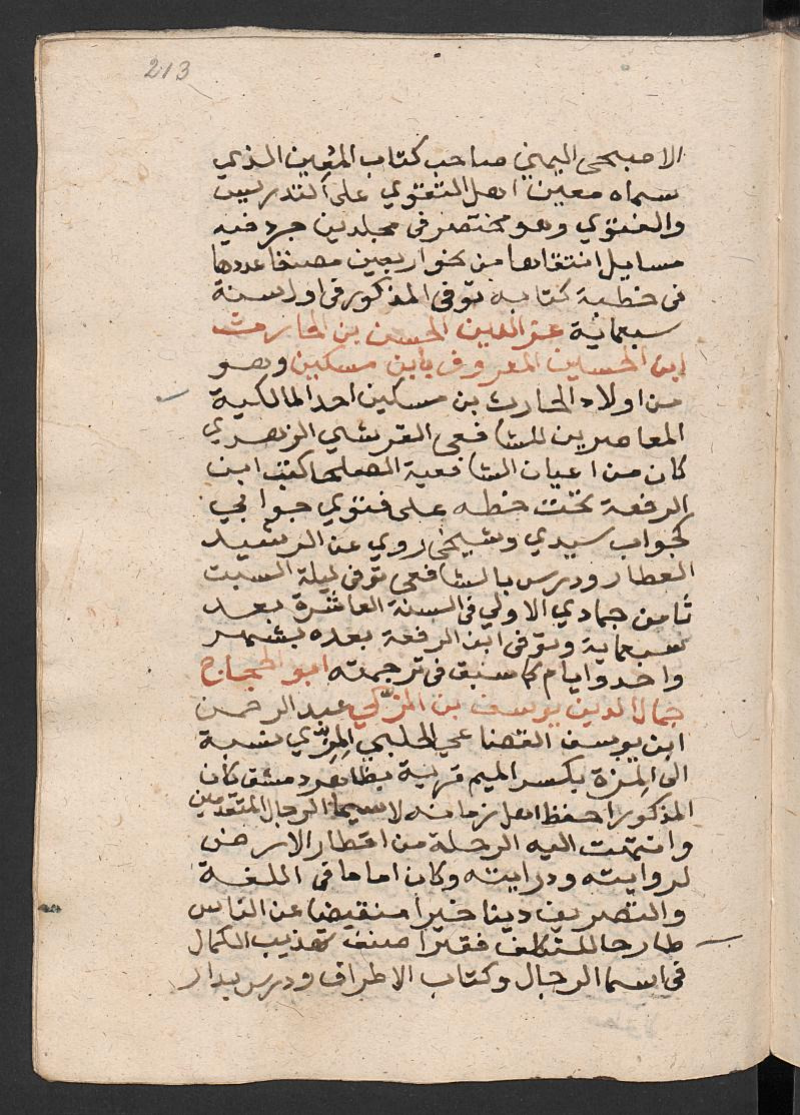 213
الاصبحى اليمنى صاحب كتاب المعين الذي
سماه معين اهل التقوي على التدريس
والفتوي وهو مختصر فى مجلدين جرد فيه
مسايل انتقاها من نحو اربعين مصنفا عددها
فى خطبة كتابه توفى المذكور فى اول سنة
سبعماية عز الدين الحسن بن الحارث
ابن الحسين المعروف بابن مسكين وهو
من اولاد الحارث بن مسكين احد المالكية
المعاصرين للشافعى القرشي الزهري
كان من اعيان الشافعية الصلحا كتب ابن
الرفعة تحت خطه على فتوي جوابي
كجواب سيدي وشيخى روي عن الرشيد
العطار ودرس بالشافعى توفى ليلة السبت
ثامن جمادي الاولي فى السنة العاشرة بعد
سبعماية وتوفى ابن الرفعة بعده بشهر
واحد وايام كما سبق فى ترجمته ابو الحجاج
جمال الدين يوسف بن المزكي عبد الرحمن
ابن يوسف القضاعي الحلبي المزي نسبة
الى المزة بكسر الميم قرية بظاهر دمشق كان
المذكور احفظ اهل زمانه لا سيما الرجال المتقدمين
وانتهت اليه الرحلة من اقطار الارض
لروايته ودرايته وكان اماما فى اللغة
والتصريف دينا خيرا منقبضا عن الناس
طارحا للتكلف فقيرا صنف تهذيب الكمال
فى اسما الرجال وكتاب الاطراف ودرس بدار